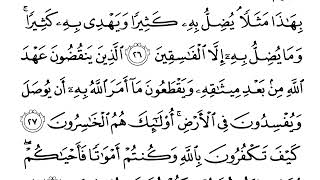 بِهَٰذَا مَثَلًا يُضِلُّ بِهِۦ كَثِيرًا وَيَهْدِي بِهِۦ كَثِيرًا ۚ
وَمَا يُضِلُّ بِهِۦٓ إِلَّا الْفَاسِقِينَ ﴿٢٦﴾ الَّذِينَ يَنقُضُونَ عَهْدَ
اللَّهِ مِن بَعْدِ مِيثَاقِهِۦ وَيَقْطَعُونَ مَا أَمَرَ اللَّهُ بِهِۦٓ أَن يُوصَلَ
وَيُفْسِدُونَ فِي الْأَرْضِ ۚ أُولَٰئِكَ هُمُ الْخَاسِرُونَ ﴿٢٧﴾
كَيْفَ تَكْفُرُونَ بِاللَّهِ وَكُنتُمْ أَمْوَاتًا فَأَحْيَاكُمْ ۖ